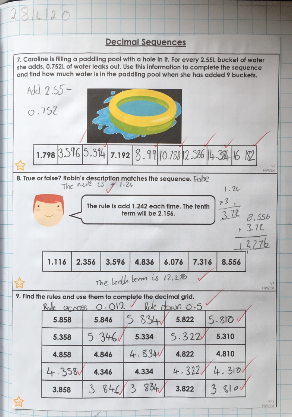 23/4/20
Decimal Sequences
7. Caroline is filling a paddling pool with a hole in it. For every 2.55L bucket of water
she adds, 0.752L of water leaks out. Use this information to complete the sequence
and find how much water is in the paddling pool when she has added 9 buckets.
Add 2.55-
0.752
1.798 3.596 5.394 7.192 8.99 10.788 12.586 14.384 16.182
8. True or false? Robin's description matches the sequence. False
The rule is + 1.24
The rule is add 1.242 each time. The tenth
term will be 2.156.
1.24
3.72
8.556
+ 3.72
12.276
1.116 2.356 3.596 4.836 6.076 7.316 8.556
The tenth term is 12.276
9. Find the rules and use them to complete the decimal grid.
Rule across 0.012 Rule down 0.5
5.858 5.846 5.834 5.822 5.810
5.358 5.346 5.334 5.322 5.310
4.858 4.846 4.834 4.822 4.810
4.358 4.346 4.334 4.322 4.310
3.858 3.846 3.834 3.822 3.810